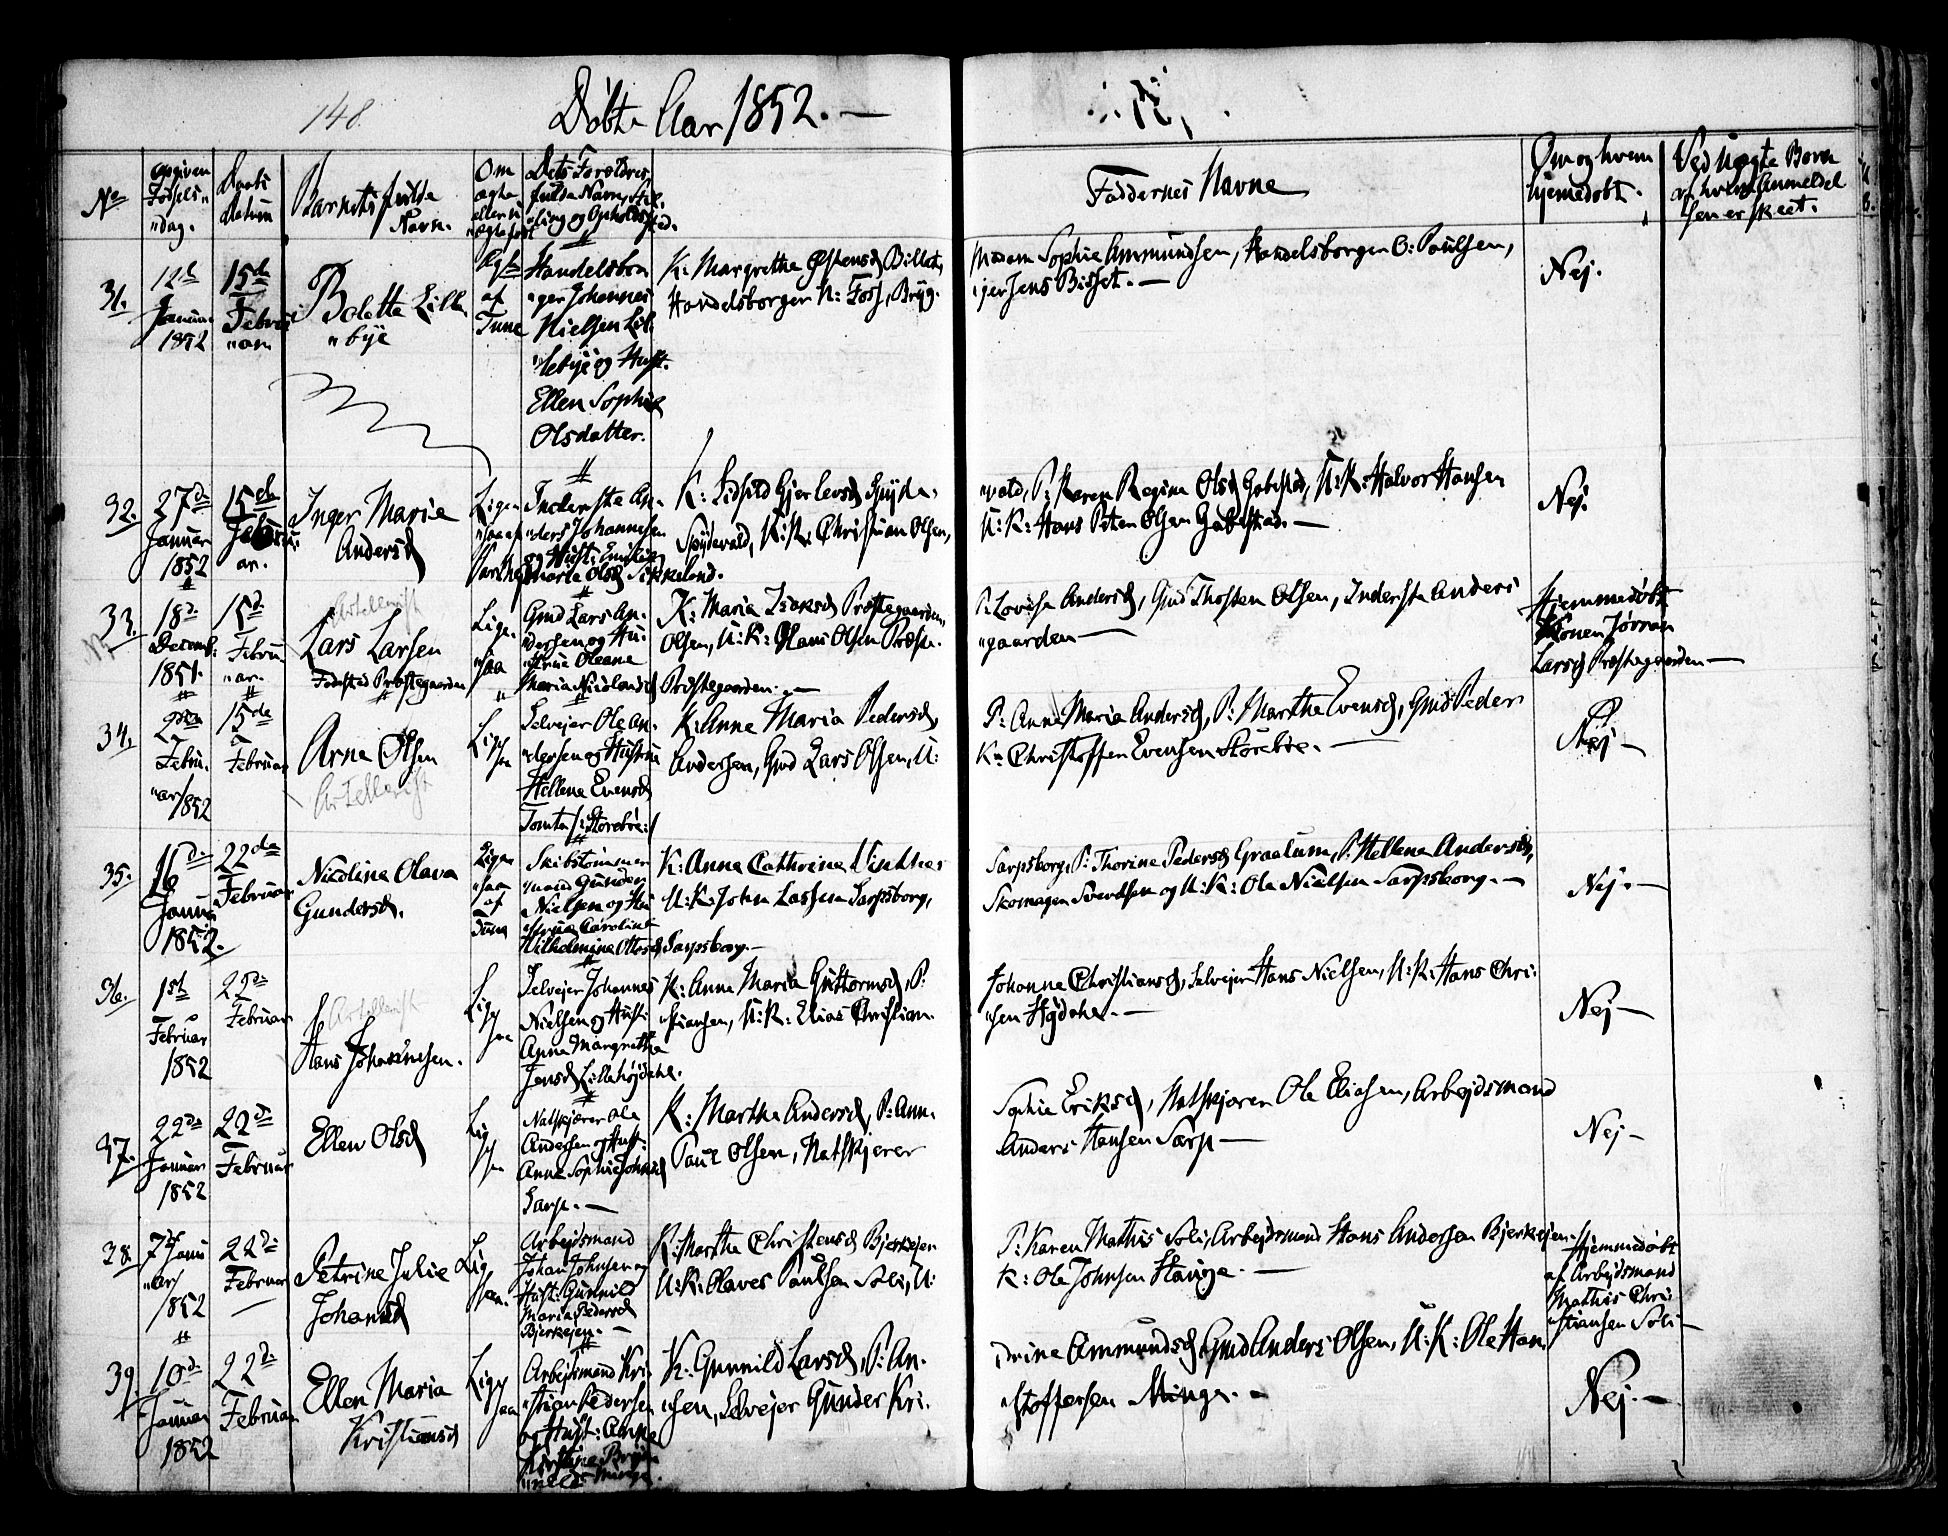 148.
Døbte Aar 1852. —
No
opgiven Fødsels-
"dag.
Daabs
datum
Barnets fulde
Navn.
Om
ægte
eller u
"ægte født
Dets Forældres
fulde Navn, Stil-
"ling og Opholdssted.
Faddernes Navne
Om og hvem
hjemmedøbt.
Ved uægte Børn
af hvem Anmeldel
sen er skeet.
31.
12te
Januar
1852
15de
Februar
"ar
Bolette Lille
"bye
Ægte
af
Tune
Handelsbor
"ger Johannes
Nielsen Lil-
"lebye og Hust.
Ellen Sophie
Olsdatter.
K: Margrethe Østensd Billet,
Handelsborger N: Foss, Bryg-
Madam Sophie Ammundsen, Handelsborger O: Paulsen,
"jer Jens Bisset. —
Nej.
32.
27de
Januar
1852
15de
Februar
ar.
Inger Marie
Andersd
Inderste An-
"ders Johannesen
og Hust: Emilie
Marie Olsd Sikkeland.
Spydevold, U:K: Christian Olsen,
"vold, P: Karen Regine Olsd Gabestad, U:K: Halvor Hansen
U:K: Hans Peter Olsen Gabestad. —
Nej.
33.
18de
Decemb:
1851.
15de
Febru
"ar.
Lars Larsen
Fødested Præstegaarden
Lige-
"saa
Gmd Lars An-
"dersen og Hu-
"strue Oleane
Maria Nicolaisd Præstegaarden. —
K: Maria Isaksd Præstegaarden,
Olsen, U:K: Hans Olsen Præste-
P: Lovise Andersd, Gmd Thosten Olsen, Inderste Anders
"gaarden —
Hjemmedøbt
Konen Jørran
Larsd Præstegaarden —
34.
2den
Febru-
"ar 1852
15de
Februar
Arne Olsen
Lige
saa
Selvejer Ole An-
"dersen og Hustru
Hellene Evensd
Tomta /: Storebroe :/
K: Anne Maria Pedersd,
Andersen, Gmd Lars Olsen, U:
P: Anne Maria Andersd, P: Marthe Evensd, Gmd Peder
K: Christoffer Evensen Storebroe. —
Nej —
35.
16de
Januar
1852.
22de
Februar
Nicoline Olava
Gundersd.
Lige
"saa
af
Tune
Skibstømmer
"mand Gunder
Nielsen og Hu
"strue Caroline
Wilhelmine Ottosd Sarpsborg. —
K: Anne Cathrine Winther
U:K: John Larsen Sarpsborg,
Sarpsborg, P: Thorine Pedersd Graalum, P: Hellene Andersd,
Skomager Sivertsen og U:K: Ole Nielsen Sarpsborg. —
Nej. —
36.
1ste
Februar
1852
22de
Februar
Hans Johannesen.
Lige
saa
Selvejer Johannes
Nielsen og Hust:
Anne Margrethe
Jensd Lillehøjdahl.
K: Anne Maria Guttormsd, P:
"stiansen, U:K: Elias Christian-
Johanne Christiansd, Selvejer Hans Nielsen, U:K: Hans Chri-
"sen Højdahl. —
Nej —
37.
22de
Januar
1852
22de
Februar
Ellen Olsd
Lige
saa
Natskjører Ole
Andersen og Hust:
Anne Sophie Johnsd
Sarp. —
K: Marthe Andersd, P: Ann-
Paul Olsen, Natskjerer
Sophie Eriksd, Natskjører Ole Eliasen, Arbejdsmand
Anders Hansen Sarp —
Nej —
38.
7de Janu
"ar
1852
22de
Februar
—
Petrine Julie
Johansd
Lige
saa.
Arbejdsmand
Johan Johnsen og
Hust: Gunnild
Maria Pedersd
Bjerkejen. —
K: Marthe Christensd Bjerkejen
U:K: Olaves Paulsen Soli, U:
P: Karen Mathis Soli, Arbejdsmand Hans Andersen Bjerkejen
K: Ole Johnsen Hauge. —
Hjemmedøbt
af Arbejdsmand
Mathis Chri-
"stiansen Soli —
39.
10de
Januar
1852
22de
Februar
Ellen Maria
Kristiansd
Lige
saa
Arbejdsmand Kri-
"stian Pedersen
og Hust: Anne
K: Gunnild Larsd, P: An-
"sen, Selvejer Gunder Kri-
"drine Ammundsd, Gmd Anders Olsen, U:K: Ole Han
"stoffersen Minge. —
Nej. —